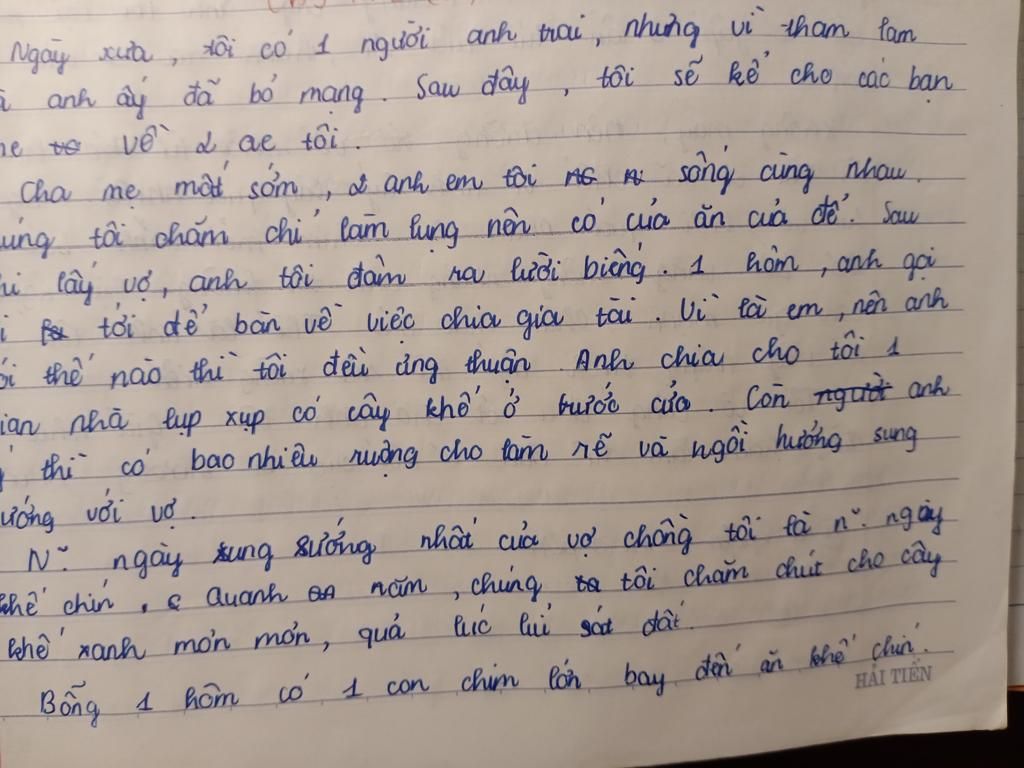 Ngày xưa, tôi có 1 người anh trai, nhưng vì tham lam
anh ấy đã bỏ mạng. Sau đây, tôi sẽ kể cho các bạn
về 2 ae tôi.
Cha mẹ mất sớm, 2 anh em tôi sống cùng nhau.
úng tôi chăm chỉ làm lụng nên có của ăn của để. Sau
hi lấy vợ, anh tôi đâm ra lười biếng. 1 hôm, anh gọi
i tới để bàn về việc chia gia tài. Vì là em, nên anh
ói thế nào thì tôi đều ưng thuận. Anh chia cho tôi 1
ian nhà lụp xụp có cây khế ở trước cửa. Còn người anh
thì có bao nhiêu ruộng cho làm rẽ và ngồi hưởng sung
ướng với vợ.
N~ ngày sung sướng nhất của vợ chồng tôi là n~ ngày
khế chín. Quanh năm, chúng tôi chăm chút cho cây
khế xanh mơn mởn, quả lúc lỉu sát đất.
Bỗng 1 hôm có 1 con chim lớn bay đến ăn khế chín.
HẢI TIẾN